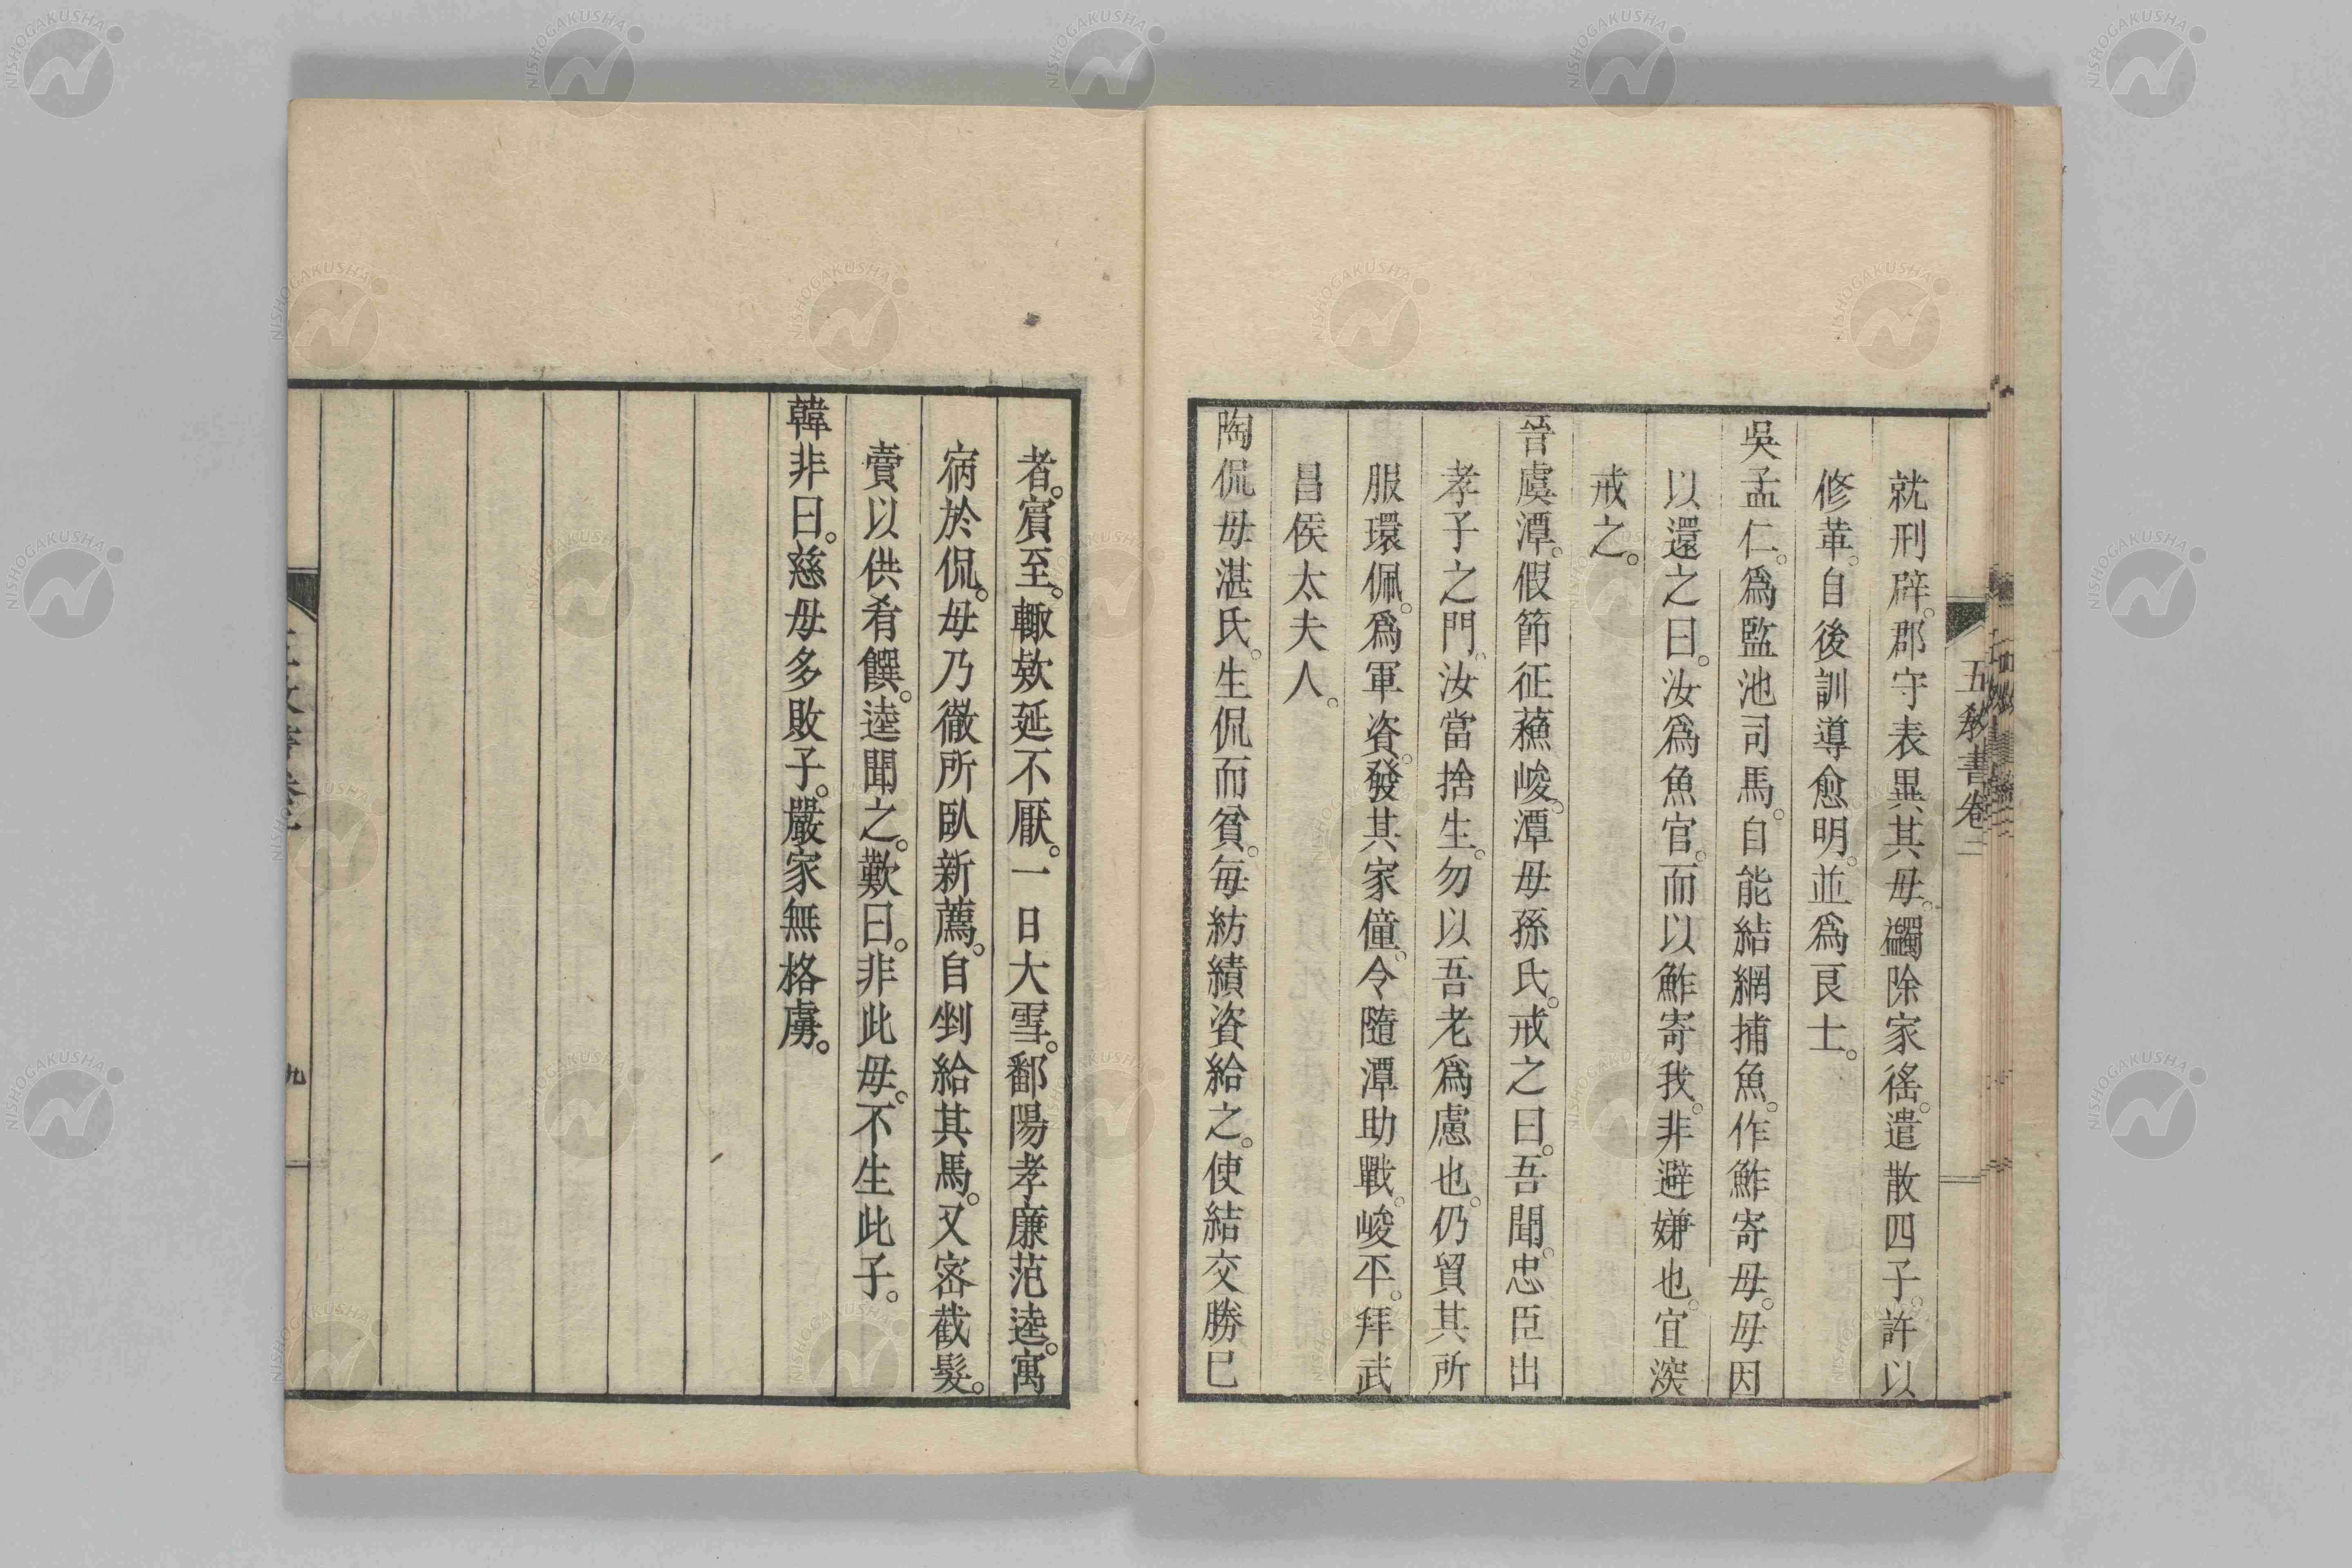 五教書卷二
就刑辟。郡守表異其母。蠲除家徭。遣散四子。許以
修革。自後訓導愈明。並爲良士。
吳孟仁。爲監池司馬。自能結網捕魚。作鮓寄母。母因
以還之曰。汝爲魚官。而以鮓寄我。非避嫌也。宜深
戒之。
晉虞潭。假節征蘓峻。潭母孫氏。戒之曰。吾聞。忠臣出
孝子之門。汝當捨生。勿以吾老爲慮也。仍貿其所
服環佩。爲軍資。發其家僮。令隨潭助戰。峻平。拜武
昌侯太夫人。
陶侃母湛氏。生侃而貧。每紡績資給之。使結交勝己
者。賓至。輙欵延不厭。一日大雪。鄱陽孝廉范逵。寓
宿於侃。母乃徹所臥新薦。自剉給其馬。又密截髮。
賣以供肴饌。逵聞之。歎曰。非此母。不生此子。
韓非曰。慈母多敗子。嚴家無格虜。
九
NISHOGAKUSHA